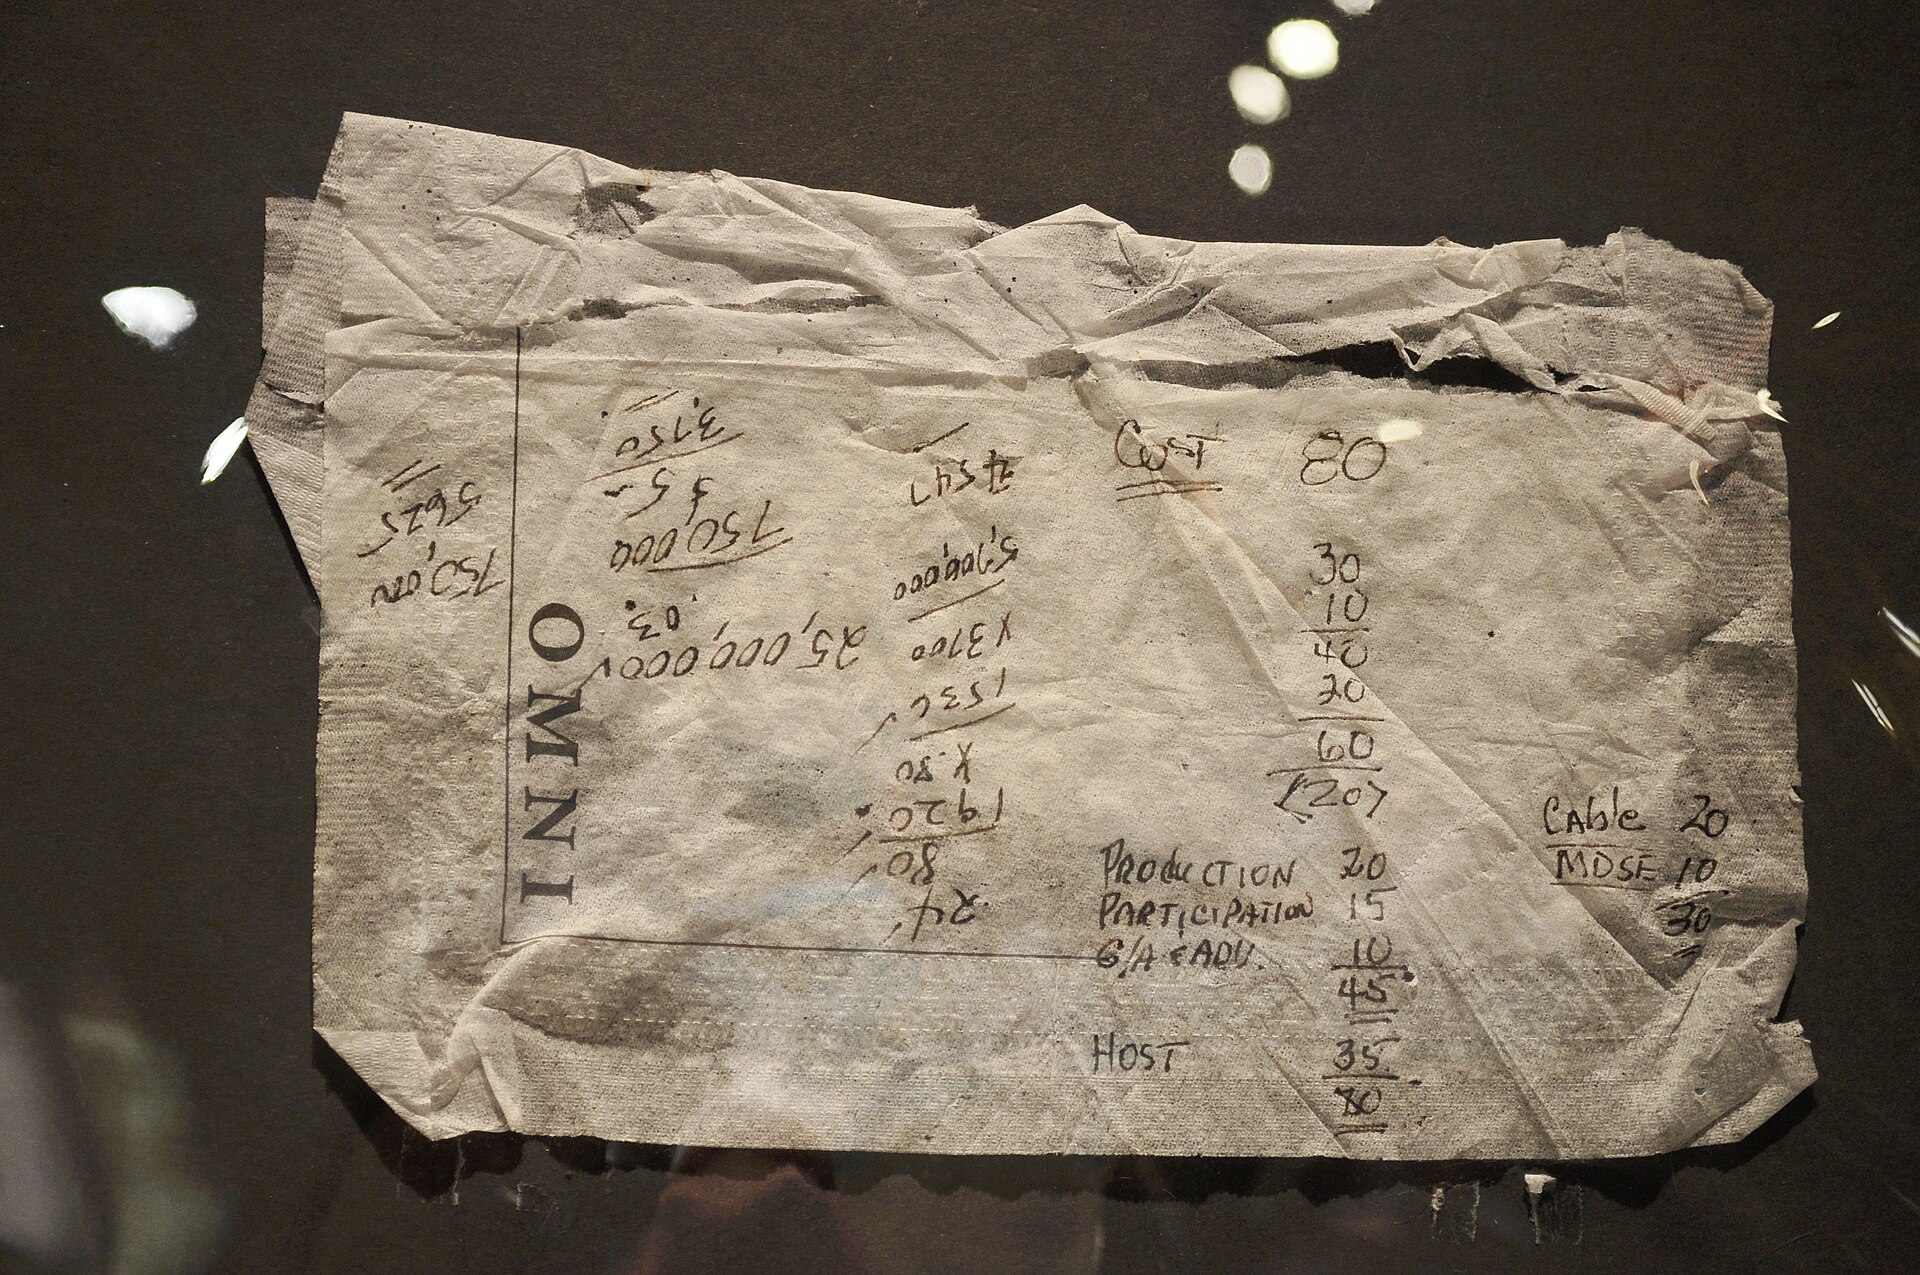 COST 80
30
10
40
20
60
<20>
PRODUCTION 20
PARTICIPATION 15
G/A & ADV. 10
45
HOST 35
80
CAble 20
MDSE 10
30
OMNI
24
80
1920
X .80
1536
X 3700
5,700,000
25,000,000
.03
750,000
$ 5-
3,750
750,000
5625